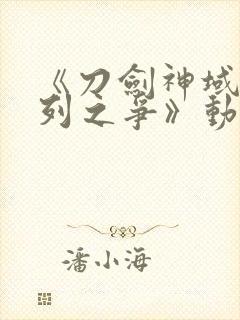 《刀劍神域
列之爭》動
潘小海